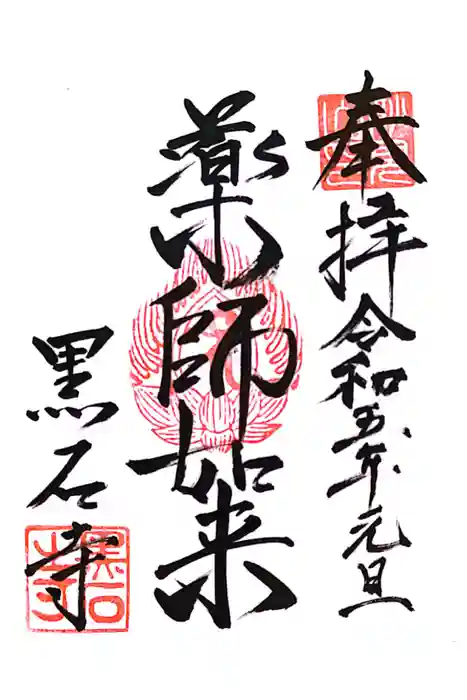 奉拝令和五年元旦
薬師如来
黒石寺
黒石寺